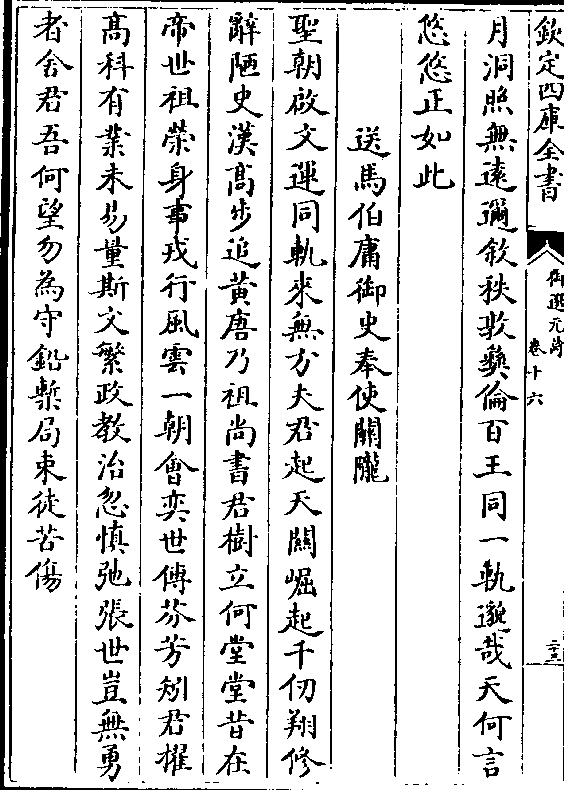 欽定四庫全書
御選元詩
卷十六
二十三
月洞照無遠邇敘秩敦彝倫百王同一軌邈哉天何言
悠悠正如此
送馬伯庸御史奉使關隴
聖朝啟文運同軌來無方夫君起天關崛起千仞翔修
辭陋史漢高步追黃唐乃祖尚書君樹立何堂堂昔在
帝世祖榮身事戎行風雲一朝會奕世傳芬芳矧君擢
高科有業未易量斯文繁政教治忽慎弛張世豈無勇
者舍君吾何望勿為守鉛槧局束徒苦傷